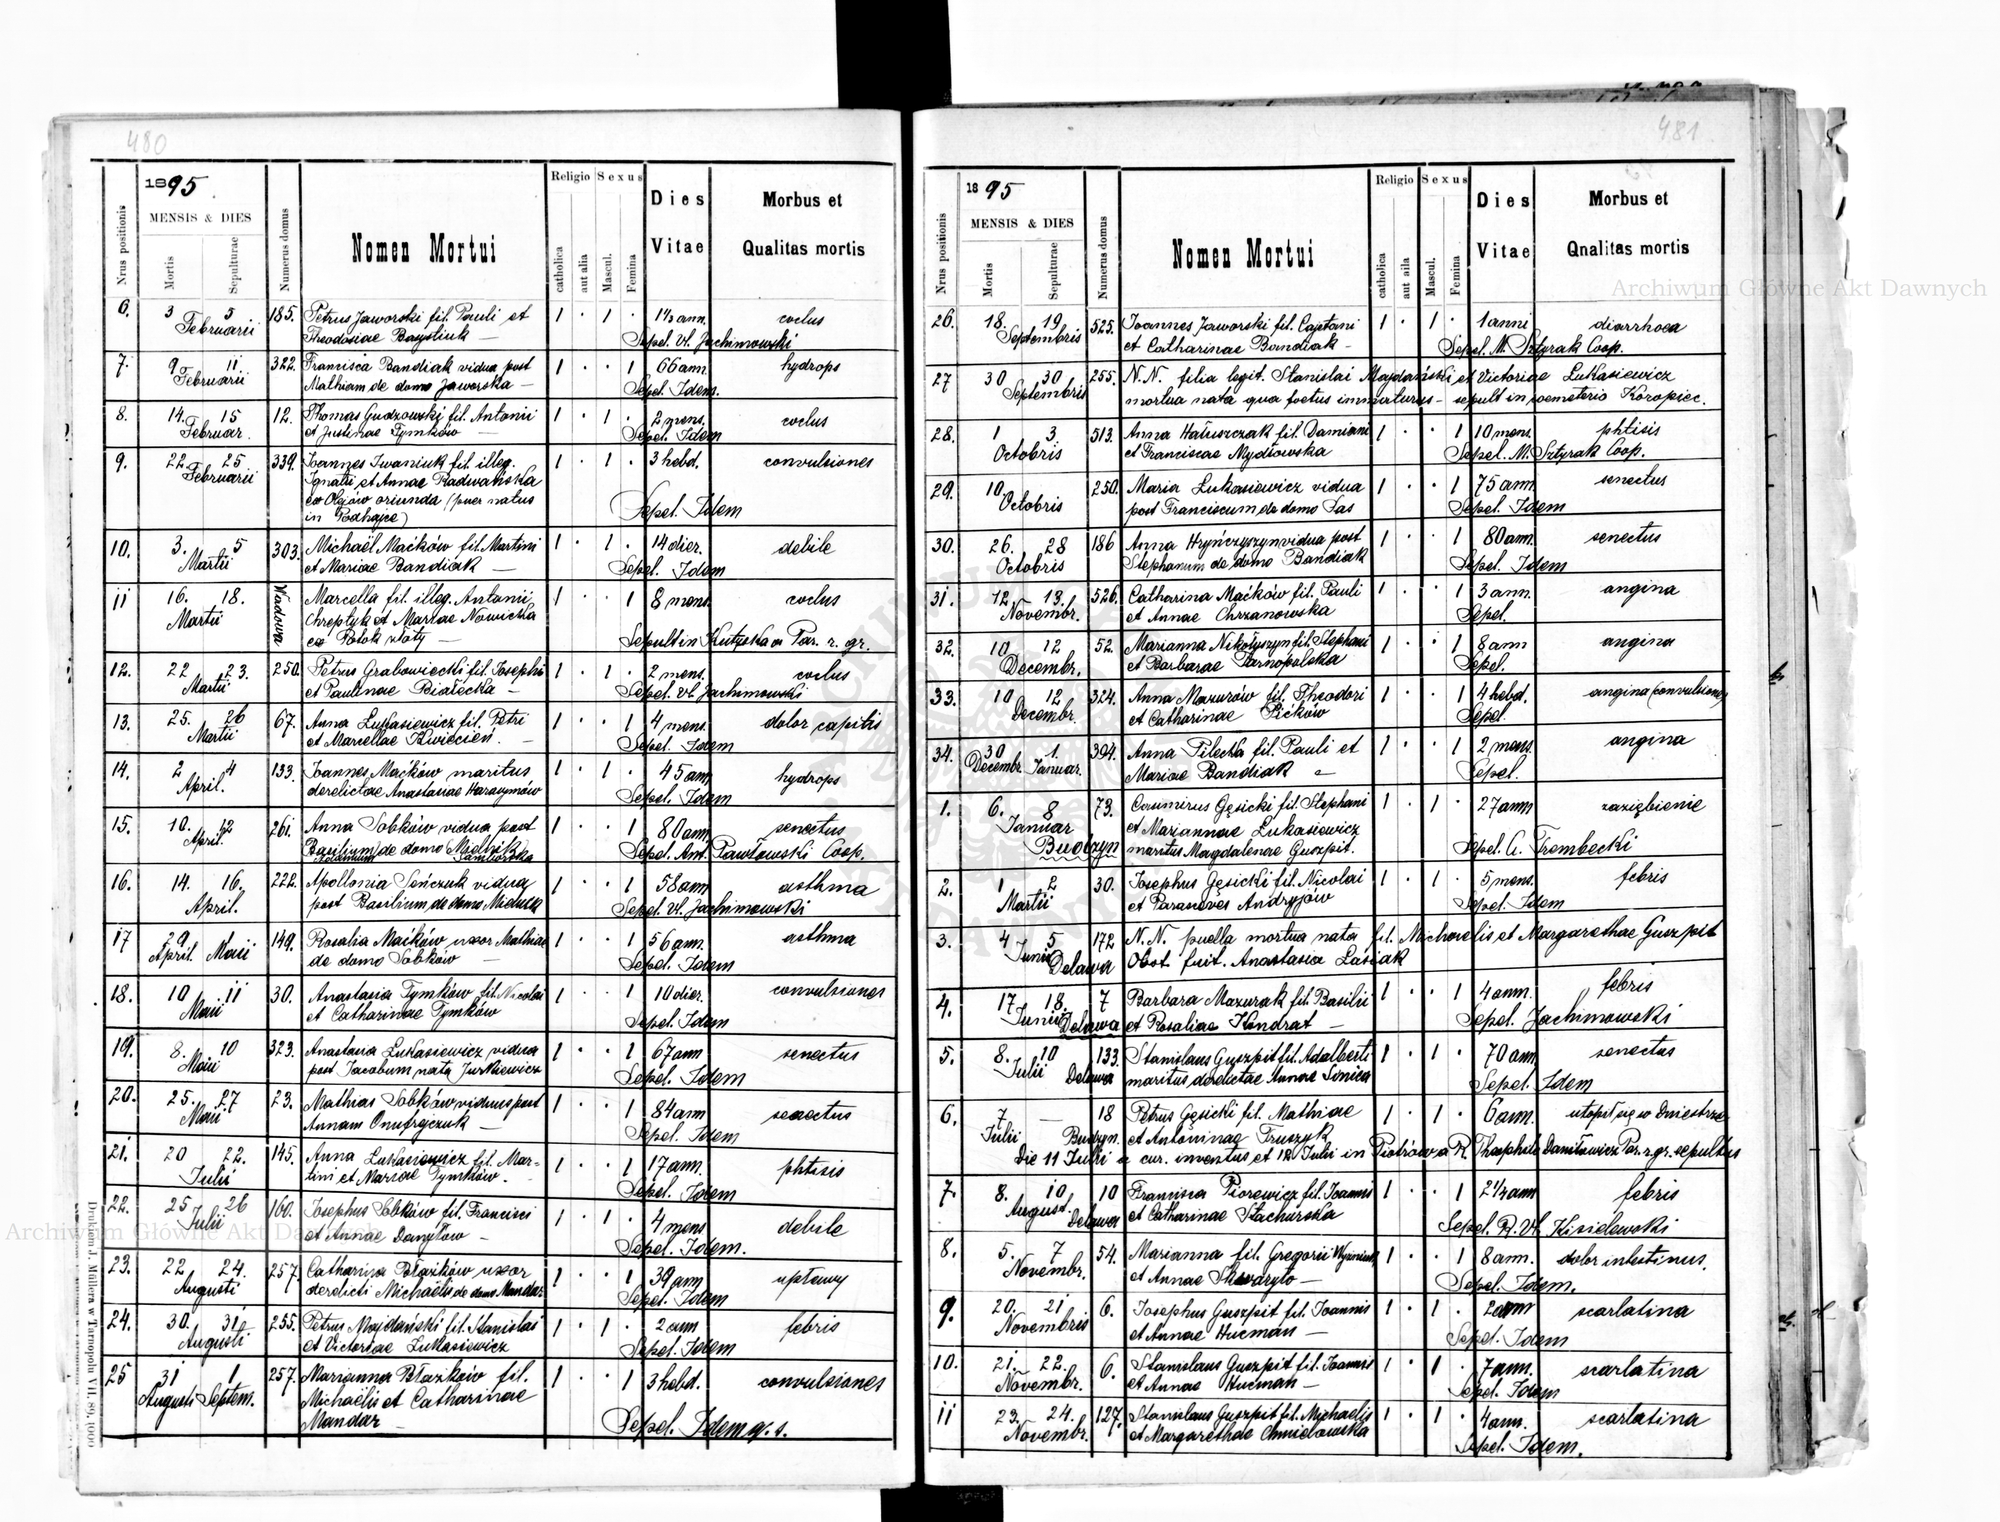 480
1895
MENSIS & DIES
Nrus positionis
Mortis
Sepulturae
Numerus domus
Nomen Mortui
Religio
Sexus
catholica
aut alia
Mascul.
Femina
Dies
Vitae
Morbus et
Qualitas mortis
6. 3 5 185. Petrus Jaworski fil. Pauli et 1 · 1 · 1½ ann. coclus
Februarii Theodosiae Basyśiuk — Sepel. Vl. Jachimowski
7. 9 11. 322. Francisca Bandiak vidua post 1 · · 1 66 ann. hydrops
Februarii Mathiam de domo Jaworska — Sepel. Idem.
8. 14. 15 12. Thomas Gudzowski fil. Antonii 1 · 1 · 2 mens. coclus
Februar. et Justinae Tymków — Sepel. Idem
9. 22. 25 339. Joannes Iwaniuk fil. illeg. 1 · 1 · 3 hebd. convulsiones
Februarii Ignatii et Annae Radwańska
ex Olejów oriunda (puer natus
in Podhajce) Sepel. Idem
10. 3. 5 303. Michaël Maćków fil. Martini 1 · 1 · 14 dier. debile
Martii et Mariae Bandiak — Sepel. Idem
11 16. 18. Wadowa Marcella fil. illeg. Antonii 1 · · 1 8 mens. coclus
Martii Chreptyk et Mariae Nowicka
ex Potok złoty — Sepult in Kutyska a Par. r. gr.
12. 22 23. 250. Petrus Grabowiecki fil. Josephi 1 · 1 · 2 mens. coclus
Martii et Paulinae Białecka — Sepel. Vl. Jachimowski
13. 25. 26 67. Anna Łukasiewicz fil. Petri 1 · · 1 4 mens. dolor capitis
Martii et Marcellae Kwiecień. — Sepel. Idem
14. 2 4 133. Joannes Maćków maritus 1 · 1 · 45 ann. hydrops
April. derelictae Anastasiae Harasymów Sepel. Idem
15. 10. 12 261. Anna Sobków vidua post 1 · · 1 80 ann. senectus
April. Basilium de domo Mielnik Sepel. Ant. Pawłowski Coop.
Adamum Samborska
16. 14. 16. 222. Apollonia Seńczuk vidua 1 · · 1 58 ann asthma
April. post Basilium, de domo Sepel. Vl. Jachimowski
17 29 1 149. Rosalia Maćków uxor Mathiae 1 · · 1 56 ann. asthma
April. Maii de domo Sobków — Sepel. Idem
18. 10 11 30. Anastasia Tymków fil. Nicolai 1 · · 1 10 dier. convulsiones
Maii et Catharinae Tymków Sepel. Idem
19. 8. 10 323. Anastasia Łukasiewicz vidua 1 · · 1 67 ann senectus
Maii post Jacobum, nata Jurkiewicz Sepel. Idem
20. 25. 27 23. Mathias Sobków viduus post 1 · · 1 84 ann senectus
Maii Annam Onufryczuk — Sepel. Idem
21. 20 22. 145. Anna Łukasiewicz fil. Mar= 1 · · 1 17 ann. phtisis
Julii tini et Mariae Tymków. — Sepel. Idem
22. 25 26 160. Josephus Sobków fil. Francisci 1 · 1 · 4 mens debile
Julii et Annae Danyłów — Sepel. Idem.
23. 22 24. 257. Catharina Błazików uxor 1 · · 1 39 ann upławy
Augusti derelicti Michaëlis de domo Mandar Sepel. Idem
24. 30. 31 255. Petrus Majdański fil. Stanislai 1 · 1 · 2 ann febris
Augusti et Victoriae Łukasiewicz Sepel. Idem
25 31 1 257. Marianna Błazików fil. 1 · · 1 3 hebd. convulsiones
Augusti Septem. Michaëlis et Catharinae
Mandar — Sepel. Idem q. s.
Drukiem J. Müllera w Tarnopolu VII. 89. 1000
481
1895
MENSIS & DIES
Nrus positionis
Mortis
Sepulturae
Numerus domus
Nomen Mortui
Religio
Sexus
catholica
aut aila
Mascul.
Femina
Dies
Vitae
Morbus et
Qnalitas mortis
26. 18. 19. 525. Joannes Jaworski fil. Cajetani 1 · 1 · 1 anni diarrhoea
Septembris et Catharinae Bandiak — Sepel. M. Sztyrak Coop.
27 30 30 255. N.N. filia legit. Stanislai Majdański et Victoriae Łukasiewicz
Septembris mortua nata qua foetus immaturus — sepult in coemeterio Koropiec.
28. 1 3. 513. Anna Hałuszczak fil. Damiani 1 · · 1 10 mens. phtisis
Octobris et Franciscae Mydłowska Sepel. M. Sztyrak Coop.
29. 10. 250. Maria Łukasiewicz vidua 1 · · 1 75 ann. senectus
Octobris post Franciscum de domo Pas Sepel. Idem
30. 26. 28 186 Anna Hryńczyszyn vidua post 1 · · 1 80 ann. senectus
Octobris Stephanum de domo Bandiak Sepel. Idem
31. 12. 13. 526. Catharina Maćków fil. Pauli 1 · · 1 3 ann. angina
Novembr. et Annae Chrzanowska Sepel.
32. 10 12 52. Marianna Nikołyszyn fil. Stephani 1 · · 1 8 ann angina
Decembr. et Barbarae Tarnopolska Sepel.
33. 10 12 324. Anna Mazurów fil. Theodori 1 · · 1 4 hebd. angina (convulsiones)
Decembr. et Catharinae Pićków Sepel.
34. 30 1. 394. Anna Pilecka fil. Pauli et 1 · · 1 2 mens. angina
Decembr. Januar. Mariae Bandiak — Sepel.
1. 6. 8 73. Casimirus Gęsicki fil. Stephani 1 · 1 · 27 ann zaziębienie
Januar et Mariannae Łukasiewicz
Budzyn maritus Magdalenae Guszpit. Sepel. A. Trembecki
2. 1 2 30. Josephus Gęsicki fil. Nicolai 1 · 1 · 5 mens. febris
Martii et Parasceves Andryjów Sepel. Idem
3. 4 5 172 N.N. puella mortua nata fil. Michaelis et Margarethae Guszpit
Junii Delawa Obst. fuit. Anastasia Lasiak
4. 17 18. 7 Barbara Mazurak fil. Basilii 1 · · 1 4 ann. febris
Junii Delawa et Rosaliae Kondrat — Sepel. Jachimowski
5. 8. 10 133. Stanislaus Guszpit fil. Adalberti 1 · 1 · 70 ann senectus
Julii Delawa maritus derelictae Annae Sinica Sepel. Idem
6. 7 — 18 Petrus Gęsicki fil. Mathiae 1 · 1 · 6 ann. utopił się w Dniestrze
Julii Budzyn. et Antoninae Truszyk
Die 11 Julii a cur. inventus et 12 Julii in Piotrów a R. Theophilo Daniłowicz Par. r. gr. sepultus
7. 8. 10 10 Francisca Piorewicz fil. Joannis 1 · · 1 2¼ ann febris
August. Delawa et Catharinae Stachurska Sepel. R. Vl. Kisielewski
8. 5. 7 54. Marianna fil. Gregorii 1 · · 1 8 ann. dolor intestinus.
Novembr. et Annae Skwaryło — Sepel. Idem.
9. 20. 21 6. Josephus Guszpit fil. Joannis 1 · 1 · 2 ann scarlatina
Novembris et Annae Hucman — Sepel. Idem
10. 21. 22. 6. Stanislaus Guszpit fil. Joannis 1 · 1 · 7 ann. scarlatina
Novembr. et Annae Hucman — Sepel. Idem
11 23. 24. 127. Stanislaus Guszpit fil. Michaelis 1 · 1 · 4 ann. scarlatina
Novembr. et Margarethae Chmielowska Sepel. Idem.
Archiwum Główne Akt Dawnych
Archiwum Główne Akt Dawnych